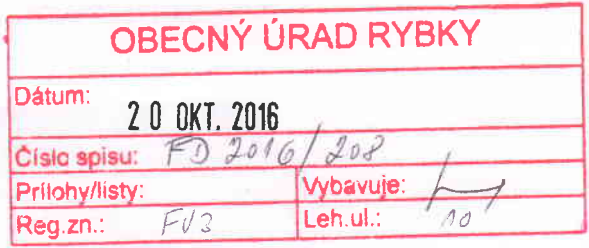 OBECNÝ ÚRAD RYBKY
Dátum:
20 OKT. 2016
Číslo spisu: FD 2016/208
Prílohy/listy: Vybavuje:
Reg.zn.: FV3 Leh.ul.: 10